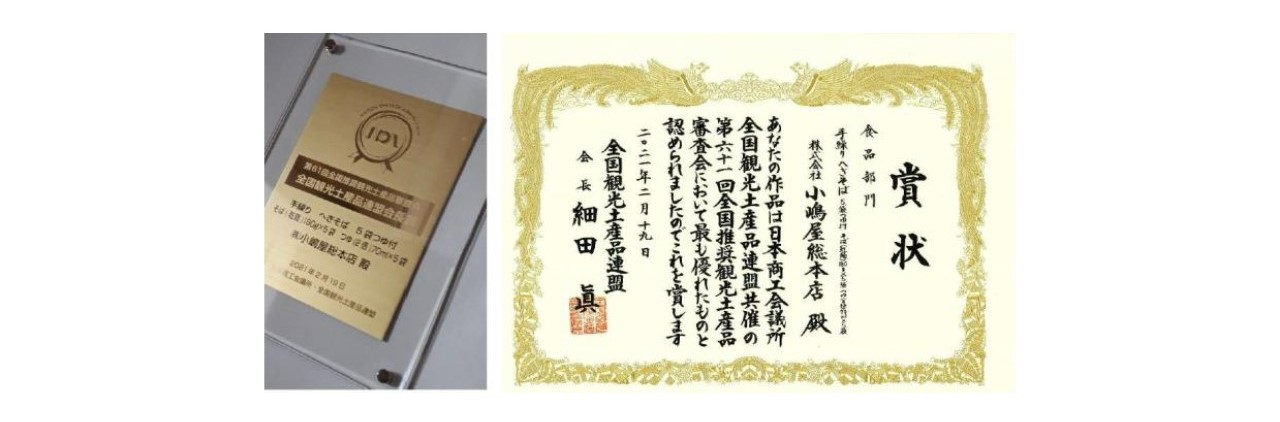 JDL
第61回全国推奨観光土産品審査会
全国観光土産品連盟会長賞
手繰り へぎそば 5袋つゆ付
小嶋屋総本店 殿
2021年2月19日
全国観光土産品連盟
賞状
食品部門
手繰りへぎそば
株式会社 小嶋屋総本店 殿
あなたの作品は日本商工会議所
全国観光土産品連盟共催の
第六十一回全国推奨観光土産品
審査会において最も優れたものと
認められましたのでこれを賞します
二〇二一年二月十九日
全国観光土産品連盟
会長 細田 眞